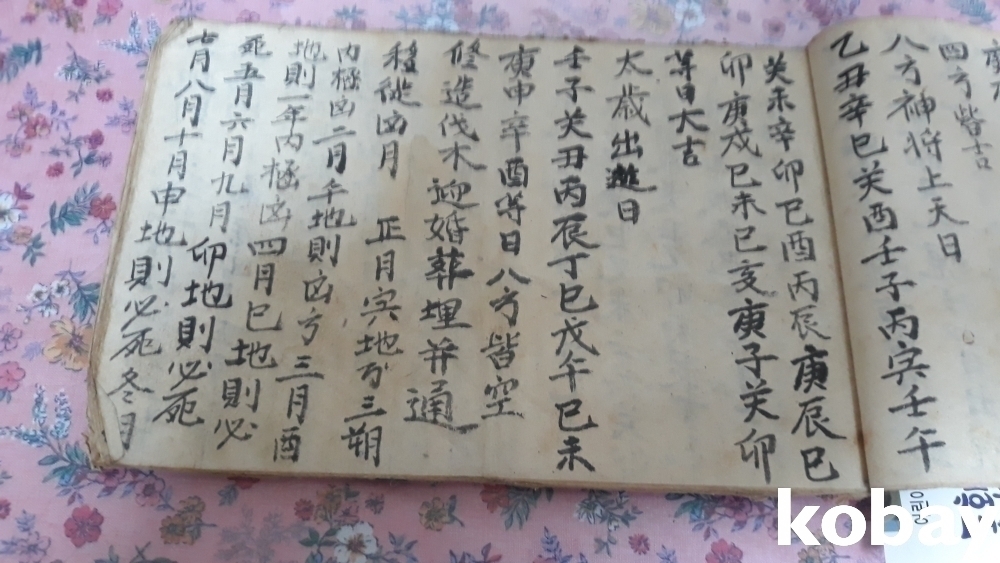 四方皆吉
八方神將上天日
乙丑辛巳癸酉壬子丙寅壬午
癸未辛卯巳酉丙辰庚辰巳
卯庚戌巳未巳亥庚子癸卯
等日大吉
太歲出遊日
壬子癸丑丙辰丁巳戊午巳未
庚申辛酉等日八方皆空
修造伐木迎婚葬埋并通
移徙凶月 正月寅地方三朔
內極凶二月午地則凶方三月酉
地則一年內極凶四月巳地則必
死五月六月九月卯地則必死
七月八月十月申地則必死冬月
kobay